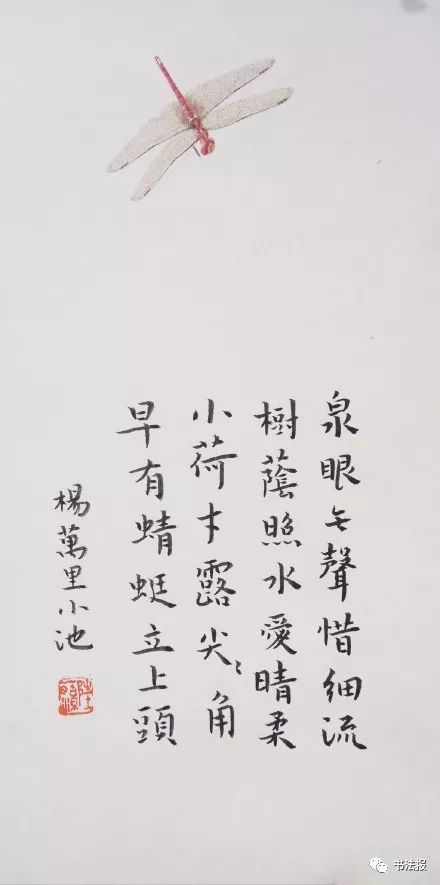 泉眼无聲惜細流
樹蔭照水愛晴柔
小荷才露尖〻角
早有蜻蜓立上頭
楊萬里小池
书法报